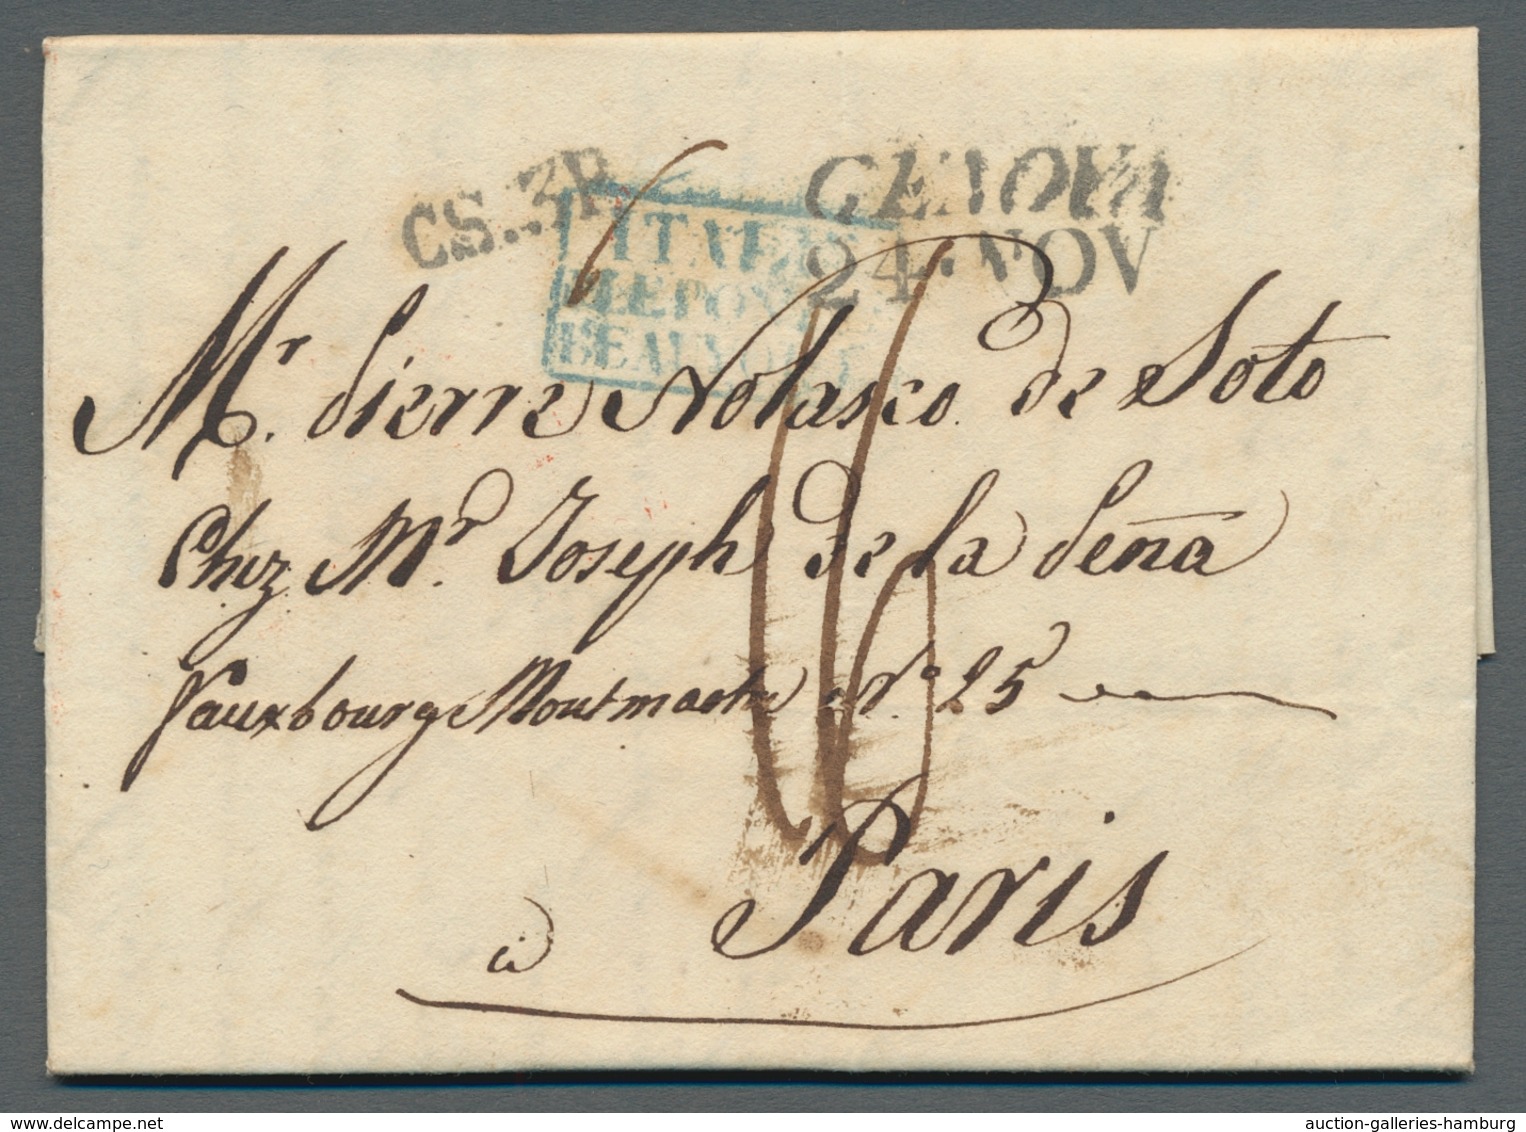 CS.3R
GENOVA
24·NOV
ITALIE
PAR
LE PONT DE
BEAUVOISIN
16
Mr. Pierre Nolasco de Soto
Chez Mr. Joseph de la Peña
Fauxbourg Montmartre No. 25
à Paris
auction-galleries-hamburg